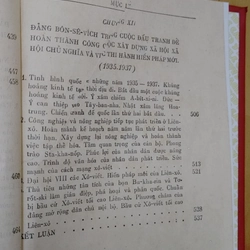 MỤC L
430
CHƯƠNG XII
ĐẢNG BÔN-SÊ-VÍCH TRONG CUỘC ĐẤU TRANH ĐỂ
HOÀN THÀNH CÔNG CUỘC XÂY DỰNG XÃ HỘI XÃ
HỘI CHỦ NGHĨA VÀ THI HÀNH HIẾN PHÁP MỚI.
(1935-1937)
1. Tình hình quốc tế những năm 1935 - 1937. Khủng
hoảng kinh tế tạm thời dịu đi. Bắt đầu một cuộc khủng
hoảng kinh tế mới. Ý xâm chiếm A-bi-xi-ni. Đức -
Ý can thiệp vào Tây-ban-nha. Nhật tấn công Trung-
hoa. Chiến tranh đế quốc lần thứ hai bắt đầu
506
2. Công nghiệp và nông nghiệp tiếp tục phát triển ở Liên-
xô. Hoàn thành kế hoạch năm năm lần thứ hai trước
thời hạn. Xây dựng lại nông nghiệp và hoàn thành
việc tập thể hóa. Tầm quan trọng của cán bộ. Phong
trào Sta-kha-nốp. Phúc lợi của nhân dân được nâng
cao. Trình độ văn hóa của nhân dân phát triển. Sức
mạnh của cách mạng xô-viết
513
3. Đại hội VIII các Xô-viết. Hiến pháp mới của Liên-xô
531
4. Thủ tiêu những tàn tích của bọn Bu-kha-rin và Tơ-
rốt-ky làm gián điệp, phá hoại và phản quốc. Chuẩn
bị bầu cử Xô-viết tối cao Liên-xô. Đảng
đang mở rộng dân chủ nội bộ. Bầu cử Xô-viết tối cao
Liên-xô
539
KẾT LUẬN